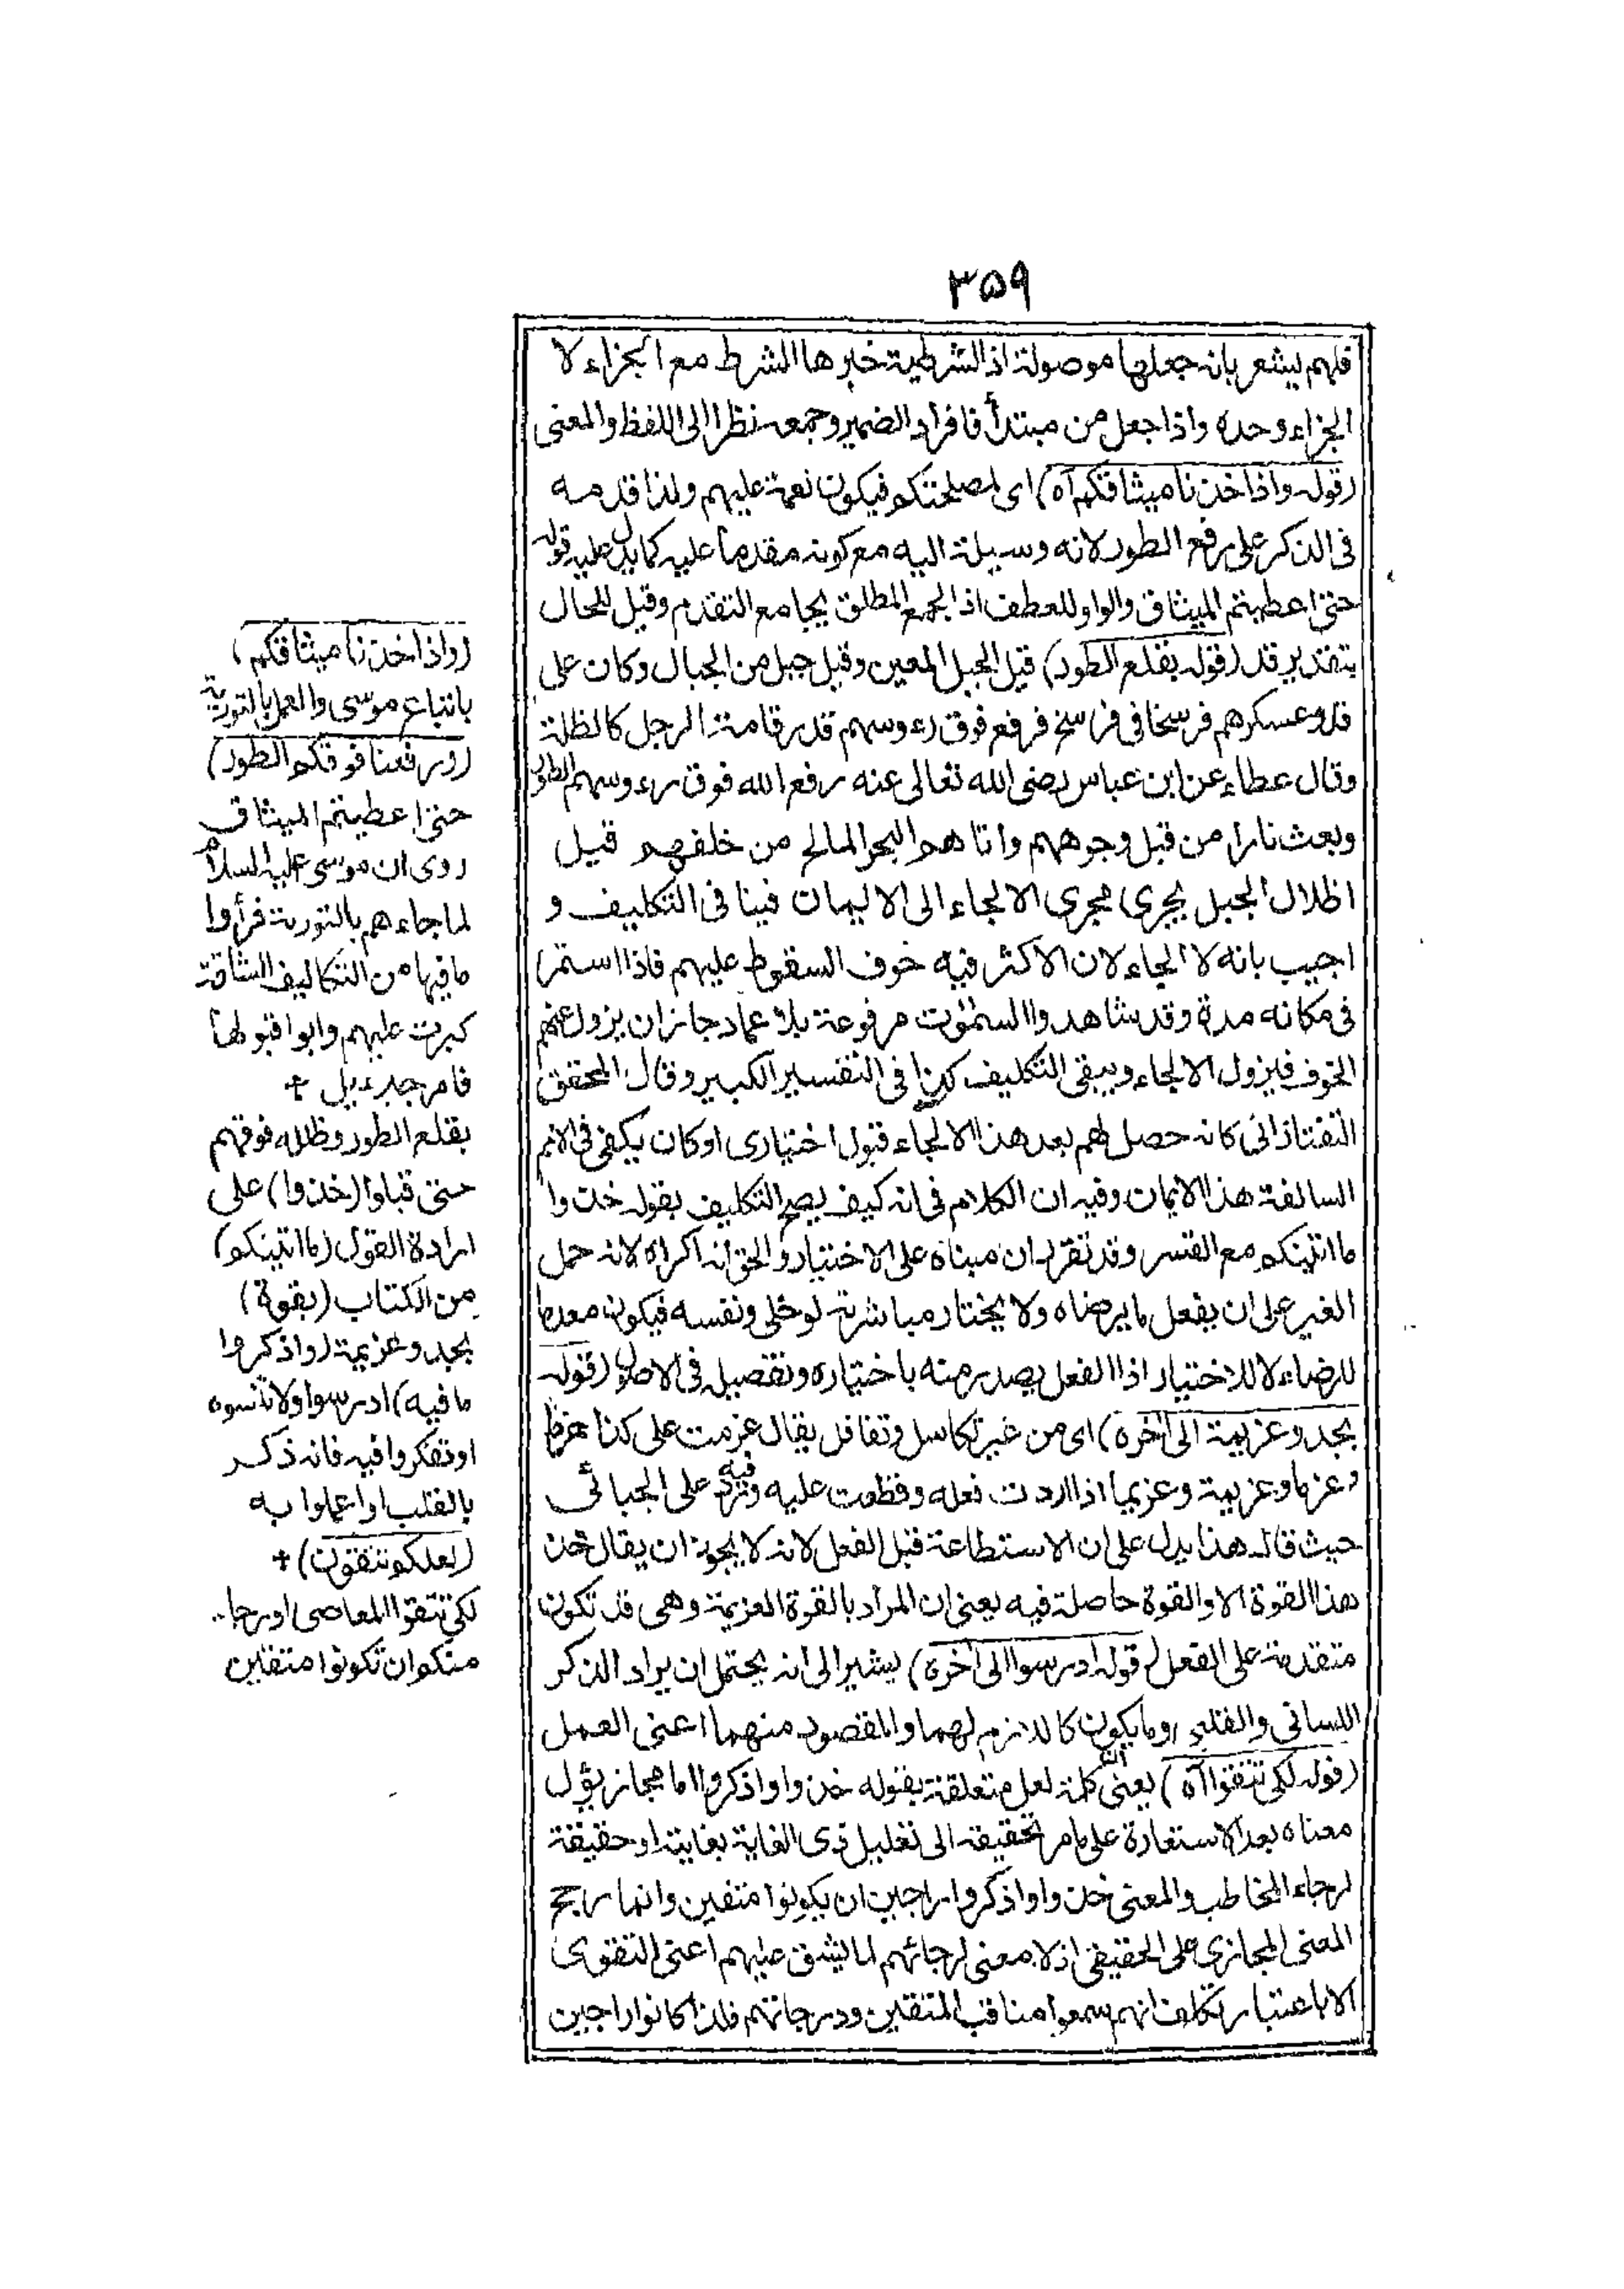 ٣٥٩
فلهم يشعر بانه جعلها موصولة اذ الشرطية خبرها الشرط مع الجزاء لا
الجزاء وحده واذا جعل من مبتدأ فافراد الضمير وجمعه نظرا الى اللفظ والمعنى
(قوله واذ اخذنا ميثاقكم آه) اى لمصلحتكم فيكون نعمة عليهم ولذا قدمه
فى الذكر على رفع الطور لانه وسيلة اليه مع كونه مقدما عليه كما يدل عليه قوله
حتى اعطيتم الميثاق والواو للعطف اذ الجمع المطلق يجامع التقدم وقيل للحال
بتقدير قد (قوله بقلع الطور) قيل الجبل المعين وقيل جبل من الجبال وكان على
قدر عسكرهم فرسخا فى فرسخ فرفع فوق رءوسهم قدر قامة الرجل كالظلة
وقال عطاء عن ابن عباس رضى الله تعالى عنه رفع الله فوق رءوسهم الطور
وبعث نارا من قبل وجوههم واتاهم البحر المالح من خلفهم قيل
اظلال الجبل يجرى مجرى الالجاء الى الايمان فينا فى التكليف و
اجيب بانه لا الجاء لان الاكثر فيه خوف السقوط عليهم فاذا استمر
فى مكانه مدة وقد شاهدوا السمٰوٰت مرفوعة بلا عماد جاز ان يزول عنهم
الخوف فيزول الالجاء ويبقى التكليف كذا فى التفسير الكبير وقال المحقق
التفتازانى كانه حصل لهم بعد هذا الالجاء قبول اختيارى او كان يكفى فى الامم
السالفة هذا الايمان وفيه ان الكلام فى انه كيف يصح التكليف بقوله خذوا
ما اتينكم مع القسر وقد تقرر ان مبناه على الاختيار والحق انه اكراه لانه حمل
الغير على ان يفعل ما يرضاه ولا يختار مباشرته لو خلى ونفسه فيكون معدما
للرضاء لا للاختيار اذ الفعل يصدر منه باختياره وتفصيله فى الاصول (قوله
بجد وعزيمة الى آخره) اى من غير تكاسل وتغافل يقال عزمت على كذا عزما
وعزما وعزيمة وعزيما اذا اردت فعله وقطعت عليه وفيه رد على الجبائى
حيث قال هذا يدل على ان الاستطاعة قبل الفعل لانه لا يجوز ان يقال خذ
هذا القوة الا والقوة حاصلة فيه يعنى ان المراد بالقوة العزيمة وهى قد تكون
متقدمة على الفعل (قوله ادرسوا الى آخره) يشير الى انه يحتمل ان يراد الذكر
اللسانى والقلبى وما يكون كاللازم لهما والمقصود منهما اعنى العمل
(قوله لكى تتقوا آه) يعنى ان كلمة لعل متعلقة بقوله خذوا واذكروا اما مجاز يؤل
معناه بعد الاستعارة على ما مر تحقيقه الى تعليل ذى الغاية بغايته او حقيقة
لرجاء المخاطب والمعنى خذوا واذكروا راجين ان يكونوا متقين وانما رجح
المعنى المجازى على الحقيقى اذ لا معنى لرجائهم لما يشق عليهم اعنى التقوى
الا باعتبار تكلف انهم سمعوا مناقب المتقين ودرجاتهم فلذا كانوا راجين
(واذ اخذنا ميثاقكم)
باتباع موسى والعمل بالتورية
(ورفعنا فوقكم الطور)
حتى اعطيتم الميثاق
روى ان موسى عليه السلام
لما جاءهم بالتورية فرأوا
ما فيها من التكاليف الشاقة
كبرت عليهم وابوا قبولها
فامر جبرءيل +
بقلع الطور وظلله فوقهم
حتى قبلوا (خذوا) على
ارادة القول (ما اتينكم)
من الكتاب (بقوة)
بجد وعزيمة (واذكروا
ما فيه) ادرسوا ولا تنسوه
او تفكروا فيه فانه ذكر
بالقلب او اعملوا به
(لعلكم تتقون) +
لكى تتقوا المعاصى او رجاء
منكم ان تكونوا متقين